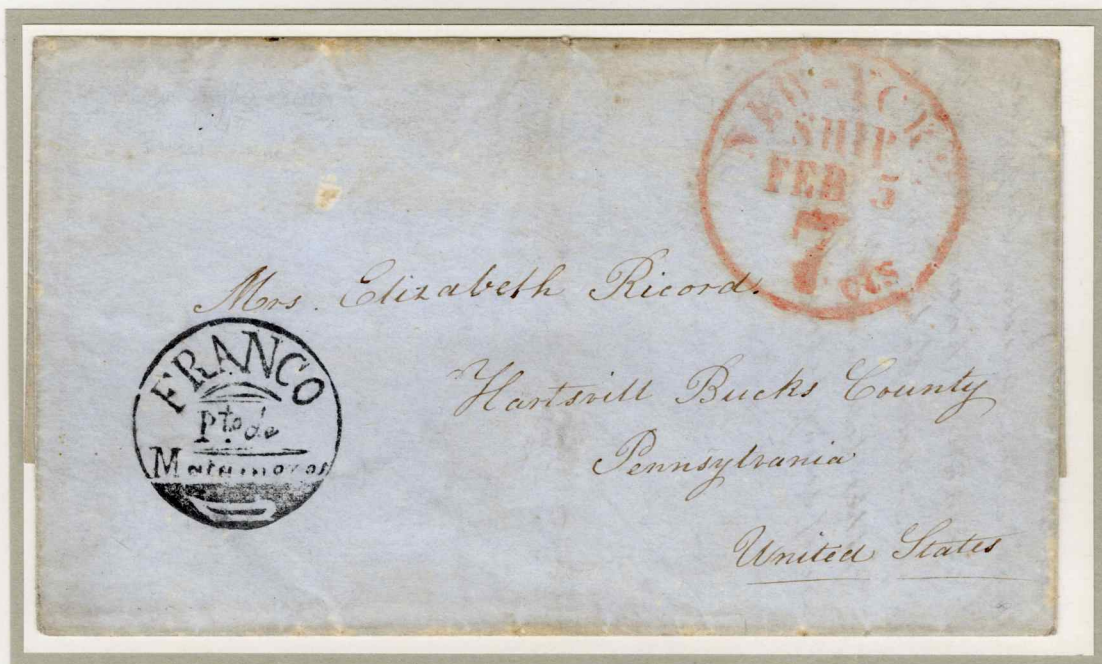 NEW-YORK
SHIP
FEB 5
7
cts
Mrs. Elizabeth Ricord.
FRANCO
Pto de
Matamoros
Hartsvill Bucks County
Pennsylvania
United States